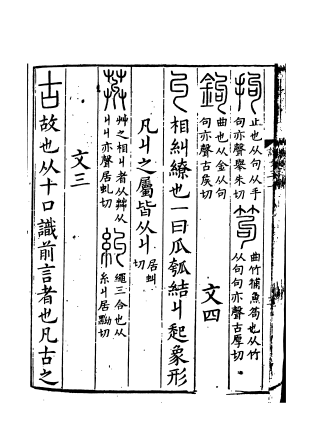 拘止也从句从手句亦聲舉朱切笱曲竹捕魚笱也从竹从句句亦聲古厚切
鉤曲也从金从句句亦聲古矦切 文四
丩相糾繚也一曰瓜瓠結丩起象形
凡丩之屬皆从丩居虯切
艸之相丩者从茻从丩丩亦聲居虯切糾繩三合也从糸丩居黝切
文三
古故也从十口識前言者也凡古之